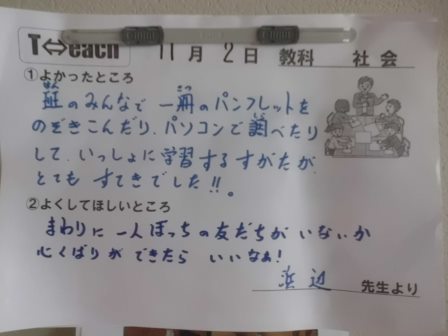 T⇔each 11月2日 教科 社会
①よかったところ
班のみんなで一冊のパンフレットを
のぞきこんだり、パソコンで調べたり
して、いっしょに学習するすがたが、
とてもすてきでした!!。
②よくしてほしいところ
まわりに一人ぼっちの友だちがいないか
心くばりができたらいいなぁ!
浜辺 先生より